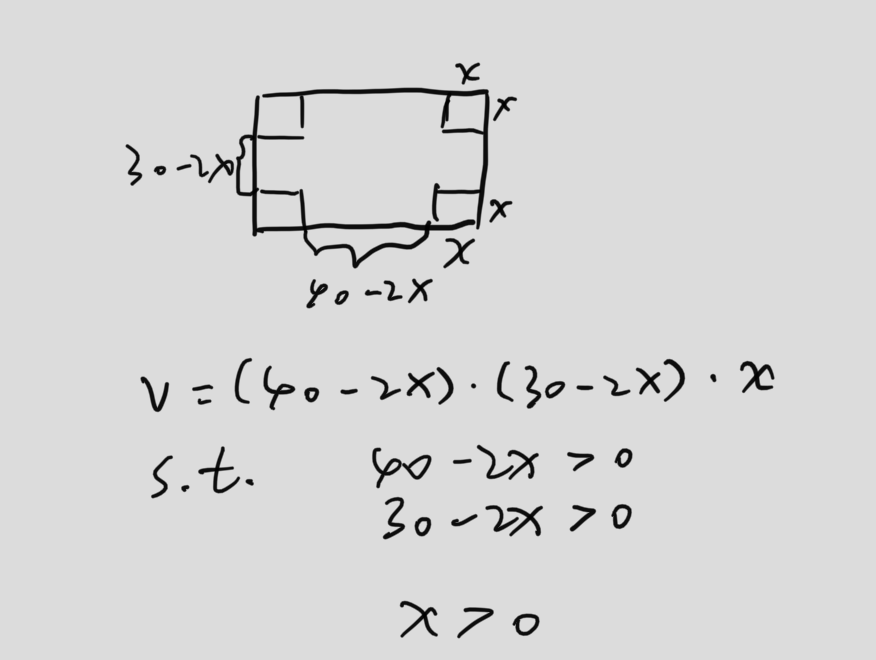 x
x
30-2x
x
x
40-2x
V = (40-2x)·(30-2x)·x
s.t. 40-2x > 0
30-2x > 0
x > 0